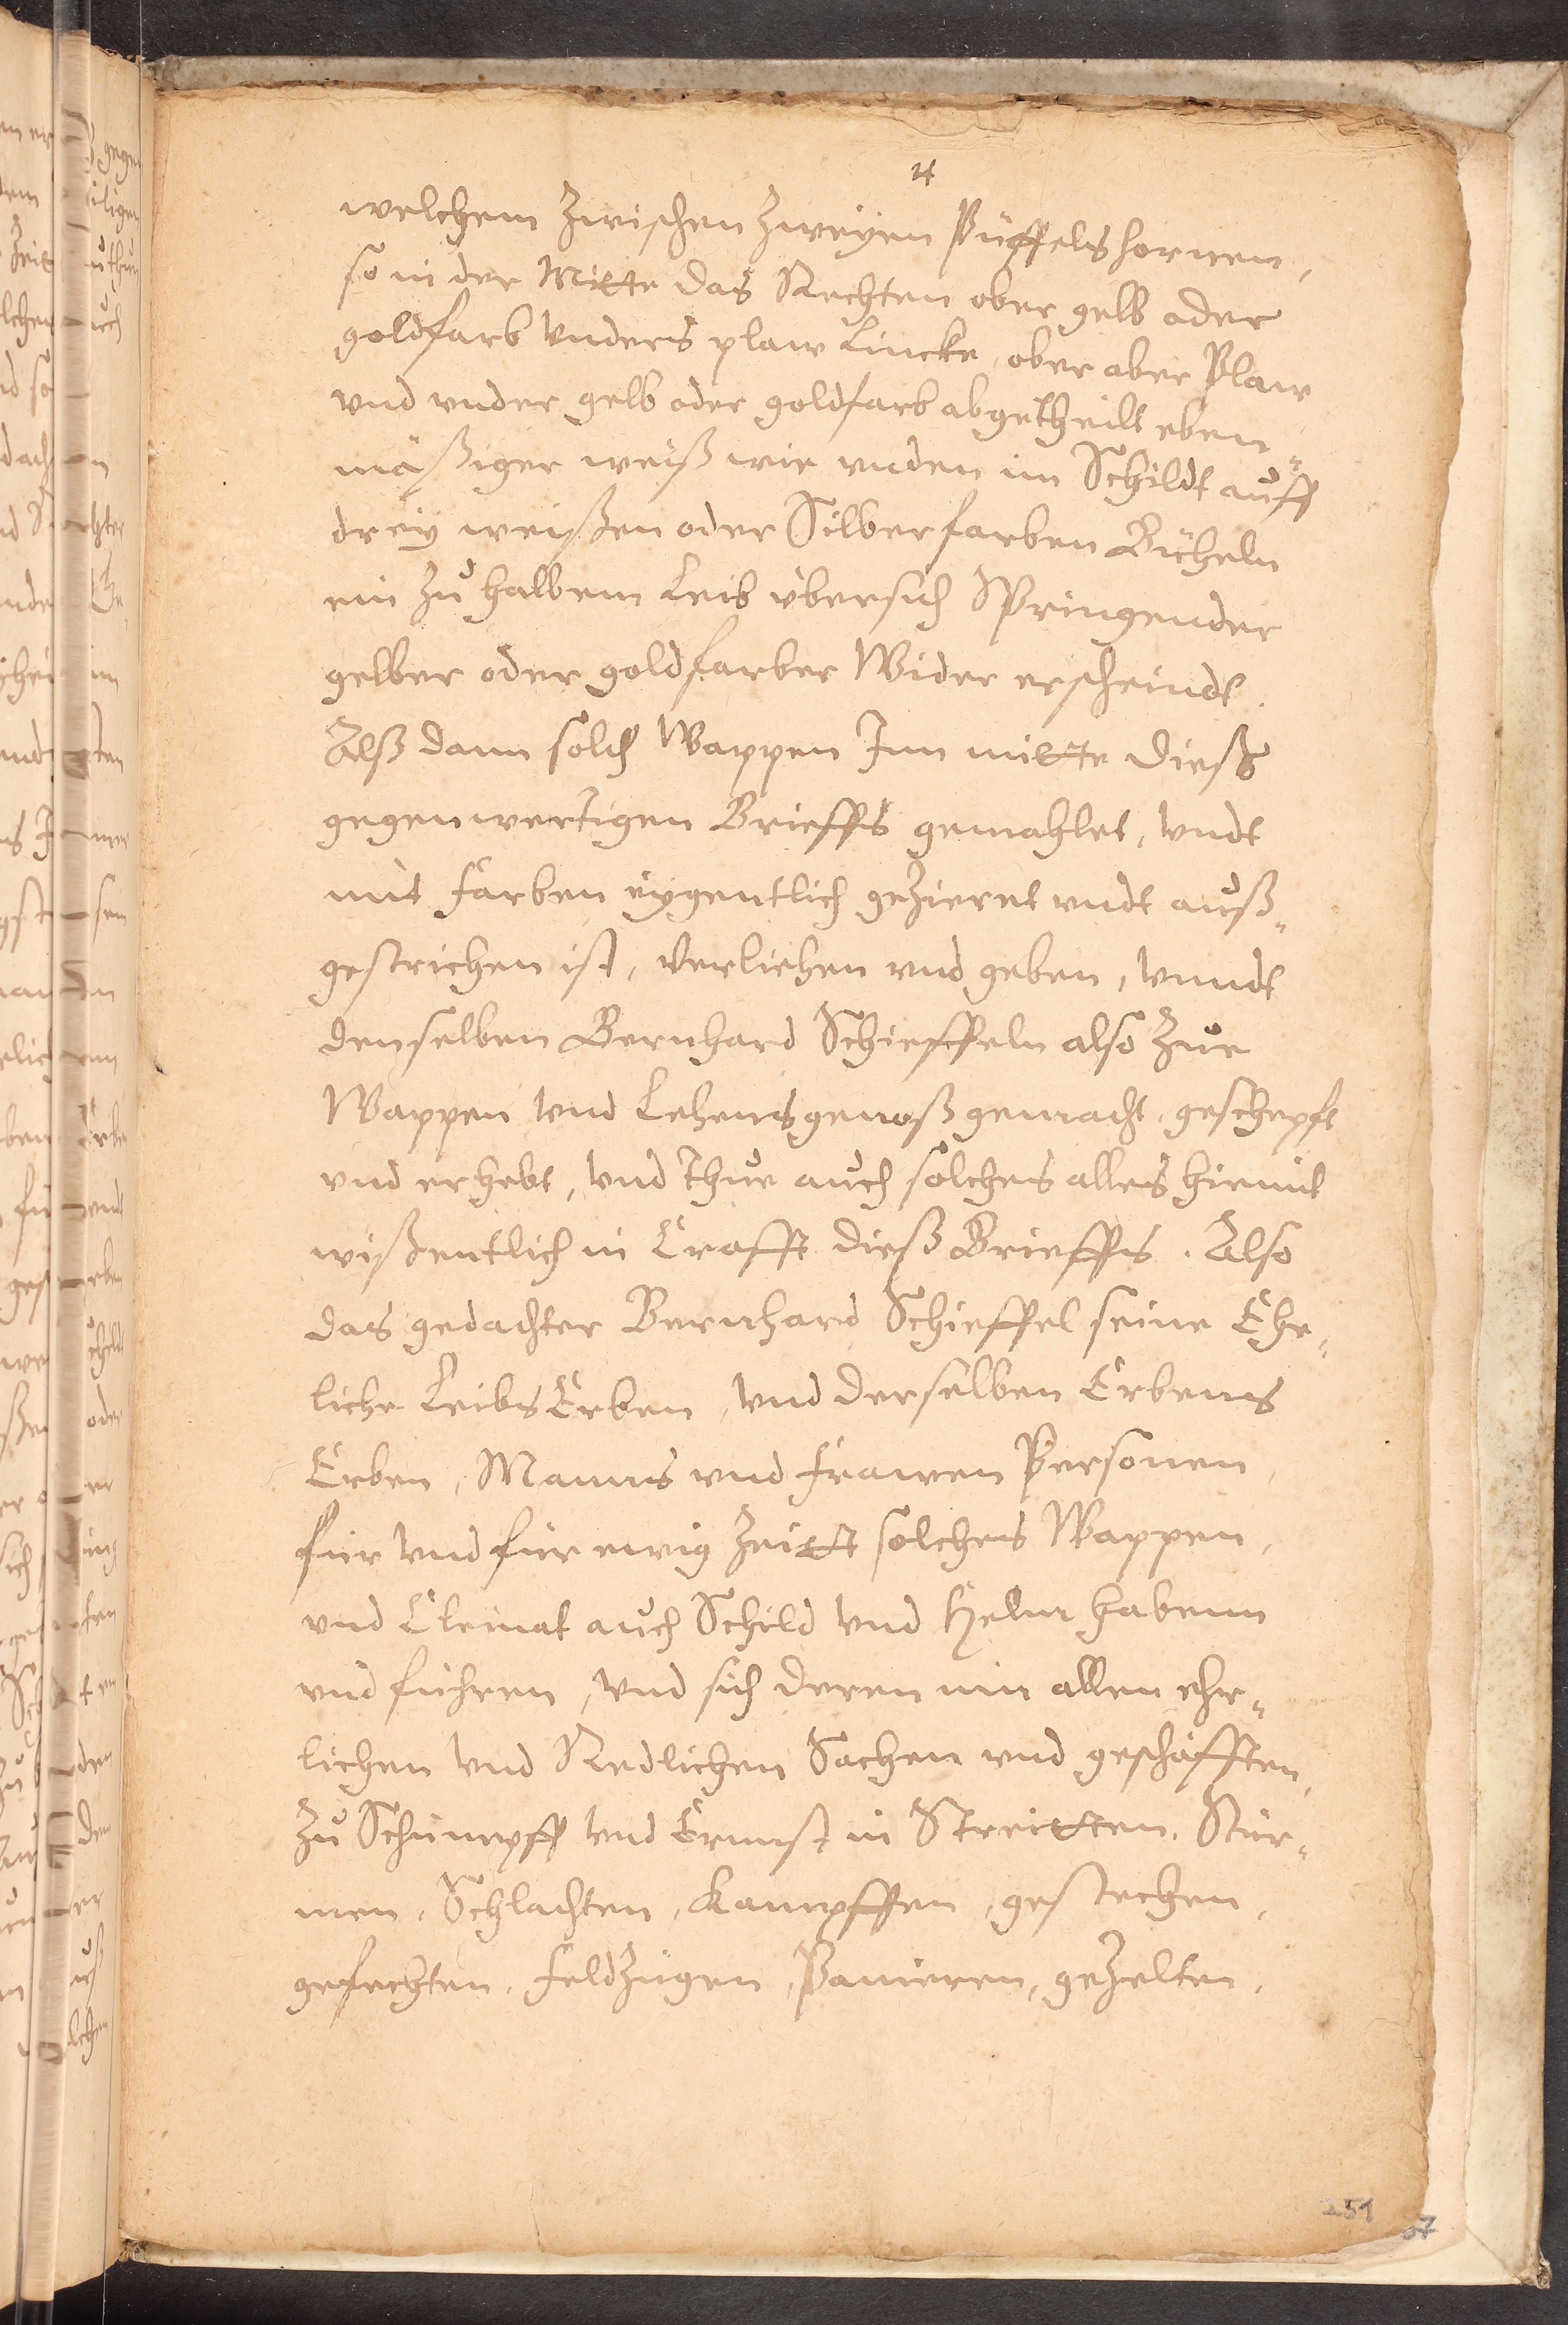 4
welchem zwischen zweyen Püffelshornen,
so in der Mitte das Rechten ober gelb oder
goldfarb vnders plaw Lincke, ober aber Plaw
vnd vnder gelb oder goldfarb abgetheilt eben¬
mäßiger weiß wie vnden im Schildt auff
drey weißen oder Silberfarben Bücheln
ein zu halbem Leib übersich Springender
gelber oder goldfarber Wider erscheindt.
Alß dann solch Wappen Inn mitte dieß
gegenwertigen Brieffs gemahlet, vndt
mit farben eygentlich gezieret vndt auß¬
gestrichen ist, Verliehen vnd geben, vnndt
denselben Bernhard Schieffeln also zue
Wappen vnd Lehensgenoß gemacht geschepft
vnd erhebt, vnd Thue auch solches alles hiemit
wißentlich in Crafft dieß Brieffs. Also
das gedachter Bernhard Schieffel seine Ehe¬
liche LeibsErben, vnd derselben Erbens
Erben, Manns vnd frawen Personen,
für vnd für ewig Zeitt solches Wappen,
vnd Cleinat auch Schild vnd Helm habenn
vnd führen, vnd sich deren inn allen ehr¬
lichen vnd Redlichen Sachen vnd geschäfften,
zu Schimpff vnd Ernnst in Streitten, Stür¬
men, Schlachten, Kampffen, gestechen,
gefechten, feldzügen, Panieren, gezelten,
251